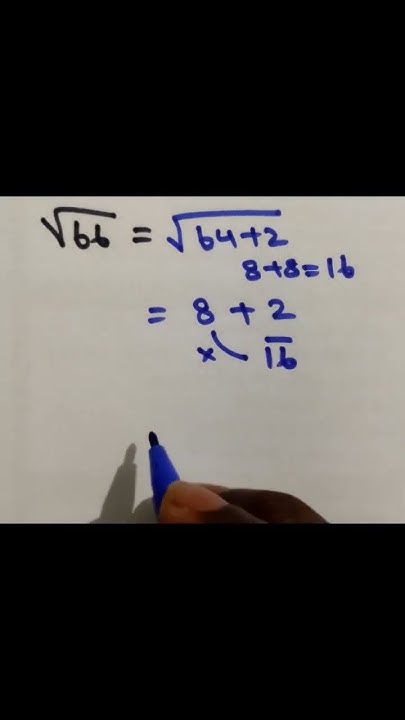 √66 = √64+2
8+8=16
= 8 + 2
× 16